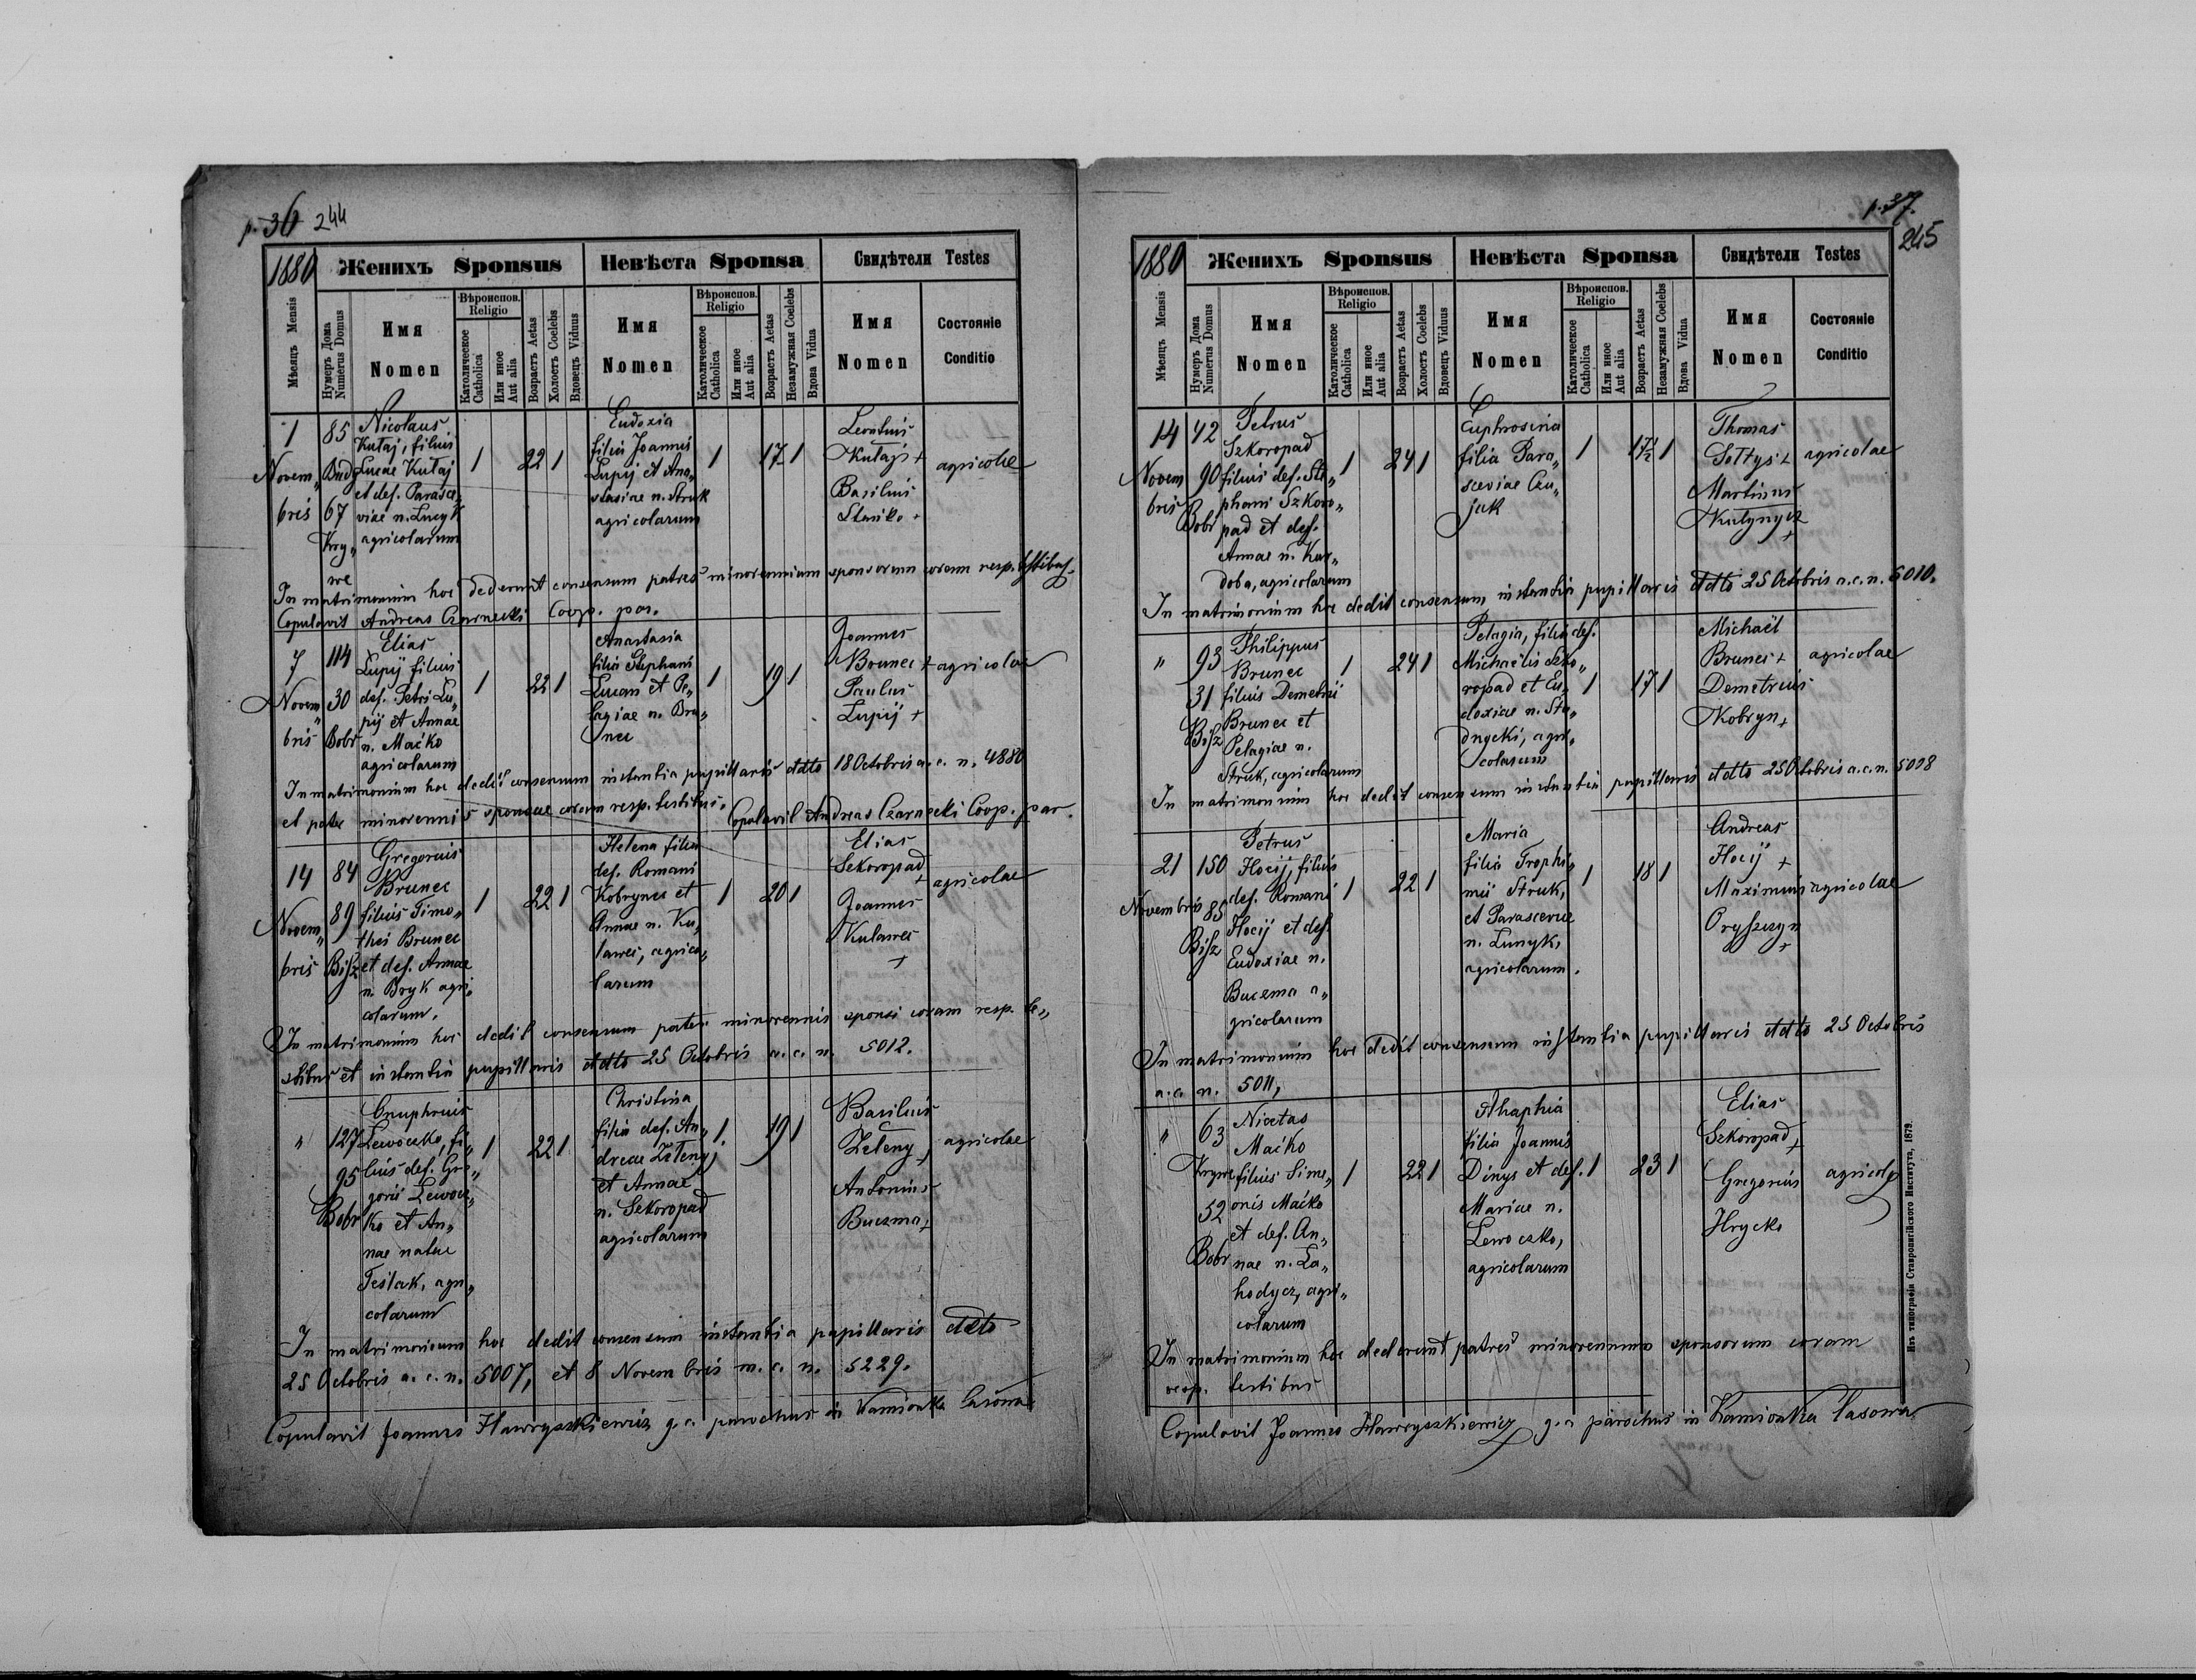 p. 36 244
1880 Женихъ Sponsus Невѣста Sponsa Свидѣтели Testes
Мѣсяцъ Mensis
Нумеръ Дома Numerus Domus
Имя Nomen
Вѣроиспов. Religio
Католическое Catholica
Или иное Aut alia
Возрастъ Aetas
Холостъ Coelebs
Вдовецъ Viduus
Имя Nomen
Вѣроиспов. Religio
Католическое Catholica
Или иное Aut alia
Возрастъ Aetas
Незамужная Coelebs
Вдова Vidua
Имя Nomen
Состояніе Conditio
1 Novem„ bris
85 Budy 67 Kry„ we
Nicolaus
Kułaj, filius
Lucae Kułaj
et def. Parasce„
viae n. Lucyk
agricolarum
1 22 1
Eudoxia
filia Joannis
Łupij et Ana„
stasiae n. Struk
agricolarum
1 17 1
Leontius
Kułaj +
Basilius
Stańko +
agricolae
In matrimonium hoc dederunt consensum patres minorennium sponsorum coram resp. testibus.
Copulavit Andreas Czarnecki Coop. par.
7 Novem„ bris
114 30 Bobr
Elias
Łupij filius
def. Petri Łu„
pij et Annae
n. Maćko
agricolarum
1 22 1
Anastasia
filia Stephani
Lucan et Pe„
lagiae n. Bru„
nec
1 19 1
Joannes
Brunec +
Paulus
Łupij +
agricolae
In matrimonium hoc dedit consensum instantia pupillaris ddto 18 Octobris a. c. n. 4880
et pater minorennis sponsae coram resp. testibus. Copulavit Andreas Czarnecki Coop. par.
14 Novem„ bris
84 89 Bisz
Gregorius
Brunec
filius Timo„
thei Brunec
et def. Annae
n. Bryk agri„
colarum.
1 22 1
Helena filia
def. Romani
Kobrynec et
Annae n. Ku„
lawec, agrico„
larum
1 20 1
Elias
Sekoropad +
Joannes
Kulawec
+
agricolae
In matrimonium hoc dedit consensum pater minorennis sponsi coram resp. te„
stibus et instantia pupillaris ddto 25 Octobris a. c. n. 5012.
„ 127 95 Bobr
Onuphrius
Lewoczko, fi„
lius def. Gre„
gorii Lewocz„
ko et An„
nae natae
Teślak, agri„
colarum
1 22 1
Christina
filia def. An„
dreae Zełenyj
et Annae
n. Sekoropad
agricolarum
1. 19 1
Basilius
Zełeny +
Antonius
Buczma +
agricolae
In matrimonium hoc dedit consensum instantia pupillaris ddto
25 Octobris a. c. n. 5007, et 8 Novembris m. c. n. 5229.
Copulavit Joannes Hawryszkiewicz g. c. parochus in Kamionka lasowa
p. 37.
245
1880 Женихъ Sponsus Невѣста Sponsa Свидѣтели Testes
Мѣсяцъ Mensis
Нумеръ Дома Numerus Domus
Имя Nomen
Вѣроиспов. Religio
Католическое Catholica
Или иное Aut alia
Возрастъ Aetas
Холостъ Coelebs
Вдовецъ Viduus
Имя Nomen
Вѣроиспов. Religio
Католическое Catholica
Или иное Aut alia
Возрастъ Aetas
Незамужная Coelebs
Вдова Vidua
Имя Nomen
Состояніе Conditio
14 Novem bris
42 90 Bobr
Petrus
Szkoropad
filius def. Ste„
phani Szkoro„
pad et def.
Annae n. Kar„
doba, agricolarum
1 24 1
Euphrosina
filia Para„
sceviae Czu„
jak
1 17½ 1
Thomas
Sołtys +
Martinus
Kulynycz
+
agricolae
In matrimonium hoc dedit consensum instantia pupillaris ddto 25 Octobris a. c. n. 5010.
„ 93 31 Bisz
Philippus
Brunec
filius Demetrii
Brunec et
Pelagiae n.
Struk, agricolarum
1 24 1
Pelagia, filia def.
Michaëlis Szko„
ropad et Eu„
doxiae n. Stu„
dnycki, agri„
colarum
1 17 1
Michaël
Brunec +
Demetrius
Kobryn +
agricolae
In matrimonium hoc dedit consensum instantia pupillaris ddto 25 Octobris a. c. n. 5008
21 Novembris
150 85 Bisz
Petrus
Hocij, filius
def. Romani
Hocij et def.
Eudoxiae n.
Buczma a„
gricolarum
1 22 1
Maria
filia Trophi„
mii Struk,
et Parasceviae
n. Łunyk,
agricolarum.
1 18 1
Andreas
Hocij +
Maximus
Oryszczyn
+
agricolae
In matrimonium hoc dedit consensum instantia pupillaris ddto 25 Octobris
a. c. n. 5011,
„ 63 Krywe 52 Bobr
Nicetas
Maćko
filius Sime„
onis Maćko
et def. An„
nae n. Ła„
hodycz, agri„
colarum
1 22 1
Ahaphia
filia Joannis
Dinys et def.
Mariae n.
Lewoczko,
agricolarum
1 23 1
Elias
Szkoropad +
Gregorius
Hrycko
agricolae
In matrimonium hoc dederunt patres minorennium sponsorum coram
resp. testibus
Copulavit Joannes Hawryszkiewicz g. c. parochus in Kamionka lasowa
Изъ типографіи Ставропигійского Института, 1879.